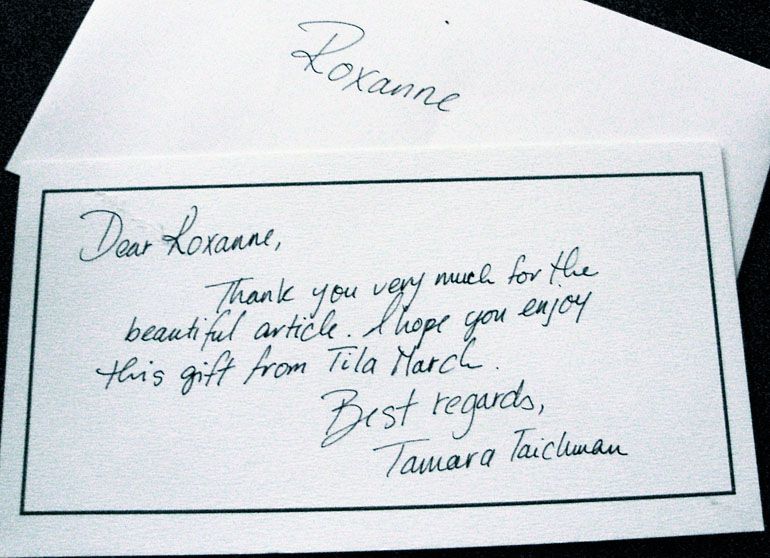 Roxanne
Dear Roxanne,
Thank you very much for the
beautiful article. I hope you enjoy
this gift from Tila March.
Best regards,
Tamara Taichman